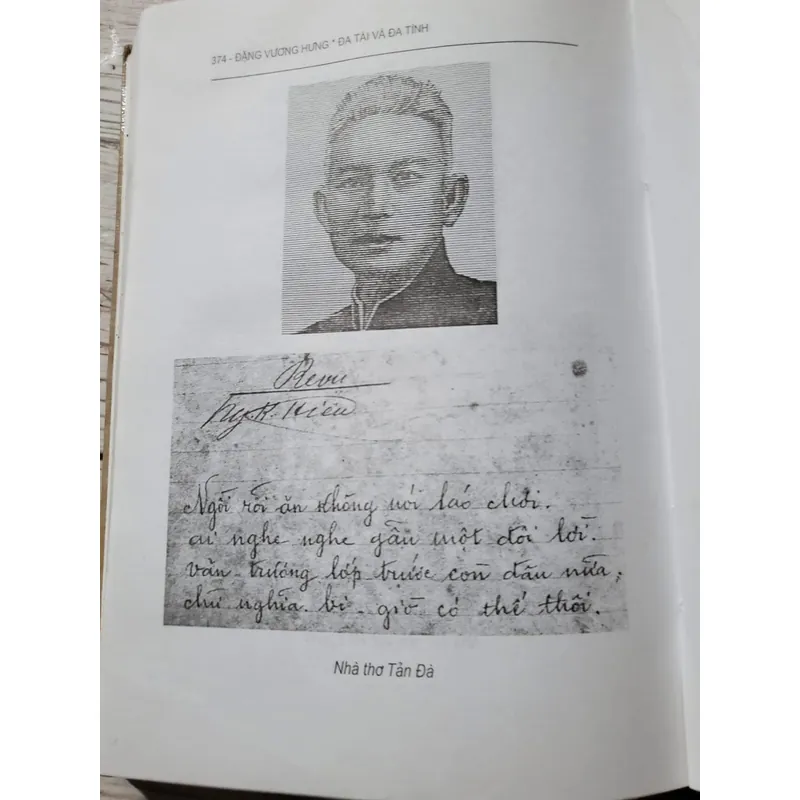 374 - ĐẶNG VƯƠNG HƯNG * ĐA TÀI VÀ ĐA TÌNH
Revu
Ng. K. Hiếu
Ngồi rồi ăn không nói láo chơi.
ai nghe nghe gẫu một đôi lời.
văn-trương lớp trước còn đâu nữa,
chữ nghĩa bi-giờ có thế thôi.
Nhà thơ Tản Đà